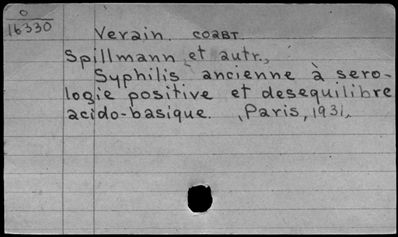 O
16330
Verain. COABT.
Spillmann et autr.,
Syphilis ancienne à sero-
logie positive et desequilibre
acido-basique. Paris, 1931.